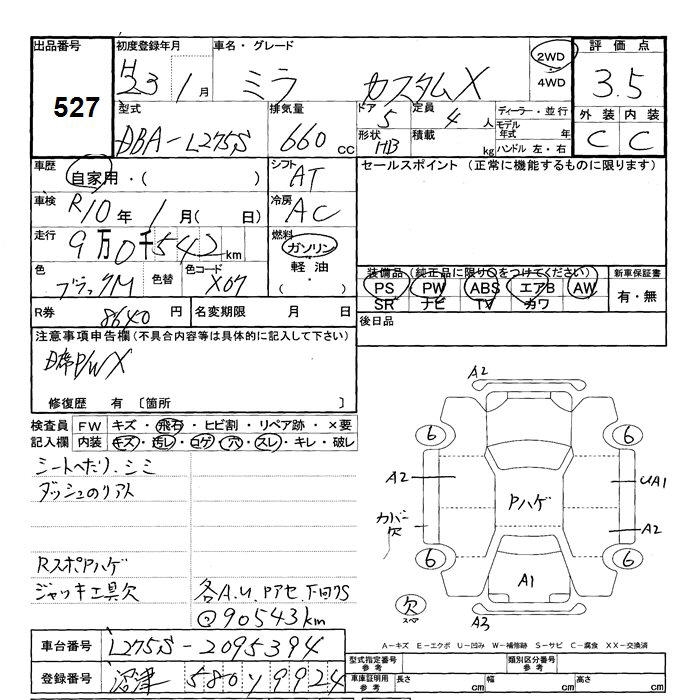 出品番号
527
初度登録年月
H23年1月
車名・グレード
ミラ カスタムX
2WD
4WD
評価点
3.5
外装 内装
C C
型式
DBA-L275S
排気量
660 CC
ドア
5
定員
4 人
形状
HB
積載
kg
ディーラー・並行
モデル年式 年
ハンドル 左・右
車歴
自家用・( )
シフト
AT
セールスポイント(正常に機能するものに限ります)
車検
R10年1月( 日)
冷房
AC
走行
9万0千542km
燃料
ガソリン
軽油
( )
色
ブラックM
色替
色コード
X07
装備品(純正品に限り○をつけてください)
PS PW ABS エアB AW
SR ナビ TV カワ
新車保証書
有・無
R券
8640円
名変期限 月 日
後日品
注意事項申告欄(不具合内容等は具体的に記入して下さい)
助席P/W X
修復歴 有 〔箇所 〕
検査員記入欄
FW キズ・飛石・ヒビ割・リペア跡・×要
内装 キズ・汚レ・コゲ・穴・スレ・キレ・破レ
シートへたり、シミ
ダッシュのリアト
RスポPハゲ
ジャッキ工具欠
各A.U.Pアセ、下回りS
@90543km
A2
6 6
A2 UA1
Pハゲ
カバー欠
A2
6 6
A1
欠
スペア
A3
車台番号
L275S-2095394
登録番号
沼津 580 у 9924
A-キズ E-エクボ U-凹み W-補修跡 S-サビ C-腐食 XX-交換済
型式指定番号
参考
類別区分番号
参考
車庫証明用
参考
長さ cm 幅 cm 高さ cm